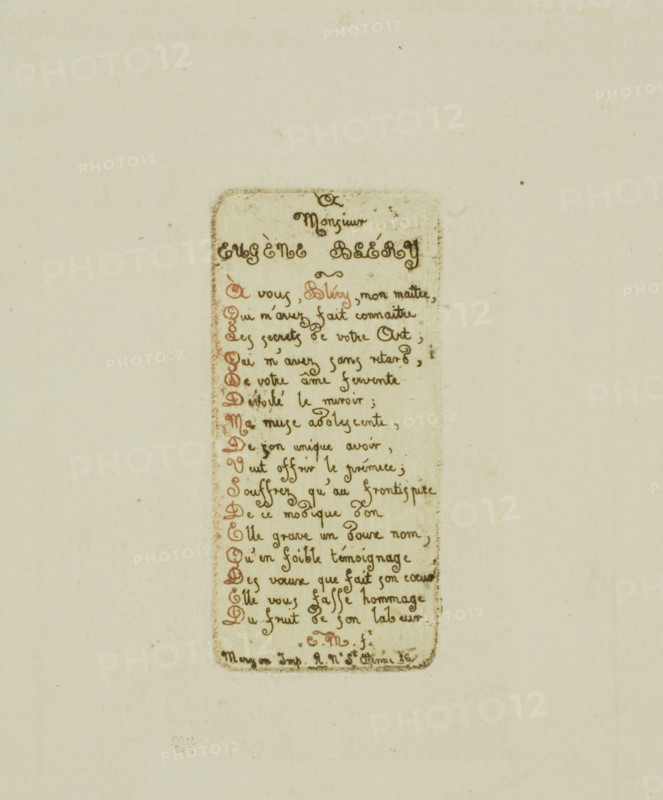 A
Monsieur
EUGÈNE BLÉRY
À vous, Bléry, mon maître,
Qui m'avez fait connaître
Les secrets de votre Art ;
Qui m'avez sans retard,
De votre âme fervente
Dévoilé le miroir ;
Ma muse adolescente,
De son unique avoir,
Veut offrir le prémice ;
Souffrez qu'au frontispice
De ce modique don
Elle grave un doux nom,
Qu'en foible témoignage
Des vœux que fait son cœur
Elle vous fasse hommage
Du fruit de son labeur.
C.M. f.
Meryon Imp. R. Nᵉ Sᵗ Etienne 26
PHOTO12